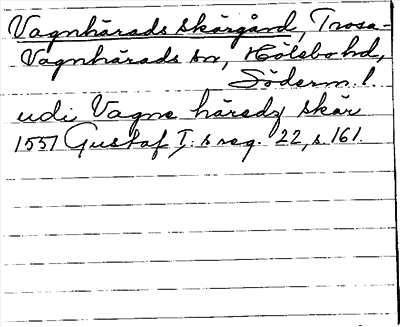 Vagnhärads skärgård, Trosa-
Vagnhärads sn, Hölebo hd,
Söderm. l.
udi Vagne häredz skär
1551 Gustaf I:s reg. 22, s. 161.